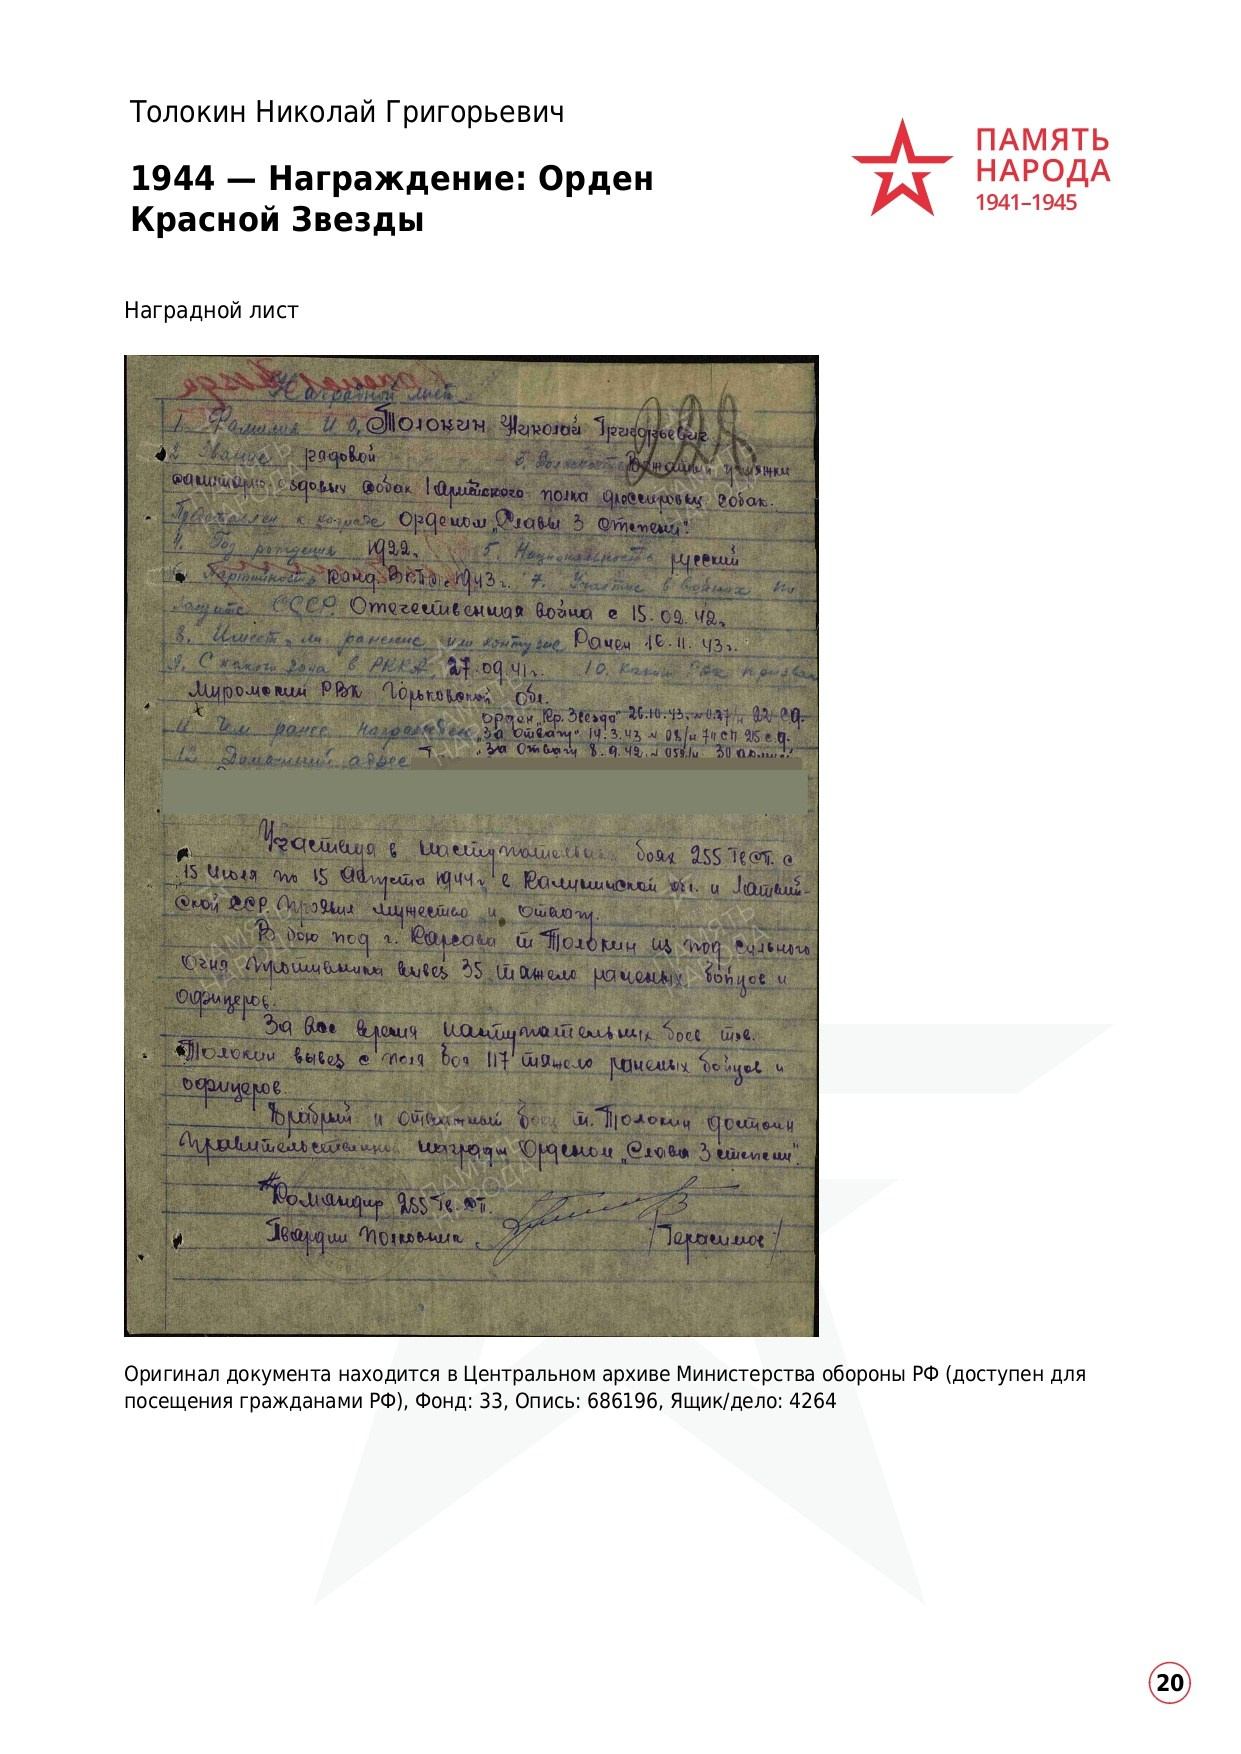 Толокин Николай Григорьевич
ПАМЯТЬ
НАРОДА
1941–1945
1944 — Награждение: Орден
Красной Звезды
Наградной лист
Наградной лист
1. Фамилия И О. Толокин Николай Григорьевич
2 Звание рядовой 3. Должность Вожатый упряжки
санитарно-ездовых собак 1 армейского полка дрессировки собак.
Представлен к Орденом „Славы 3 Степени".
4. Год рождения 1922. 5. Национальность русский
6. Партийность Канд. ВКП(б) с 1943 г. 7. Участие в войнах по
защите СССР. Отечественная война с 15.02.42.
8. Имеет ли ранение или контузие Ранен 16.11.43г.
9. С какого года в РККА. 27.09.41г. 10. Каким РВК призван
Муромский РВК Горьковской обл.
орден „Кр. Звезда" 26.10.43. 22 с.д.
11 Чем ранее награжден „За отвагу" 14.3.43 №08/н 74 СП 25 с.д.
12. Домашний адрес „За отвагу 8.9.42. №059/н 30 армией
Участвуя в наступательных боях 255 гв СП. с
15 Июля по 15 Августа 1944г. в Калининской обл. и Латвий-
ской ССР. проявил мужество и отвагу.
В бою под г. Карсава т Толокин из под сильного
Огня противника вывез 35 тяжело раненых бойцов и
офицеров.
За все время наступательных боев тов.
Толокин вывез с поля боя 117 тяжело раненых бойцов и
офицеров.
Храбрый и отважный боец т. Толокин достоин
Правительственной награды Орденом „Славы 3 степени".
Командир 255 Гв. СП.
Гвардии Полковник /Герасимов/
Оригинал документа находится в Центральном архиве Министерства обороны РФ (доступен для
посещения гражданами РФ), Фонд: 33, Опись: 686196, Ящик/дело: 4264
20